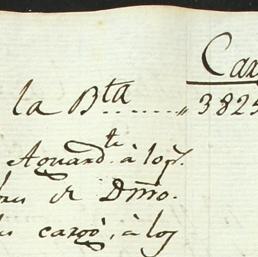 Car
la Bta........ „ 3825
Aguardte. à los
de Dmo.
cargò, à los